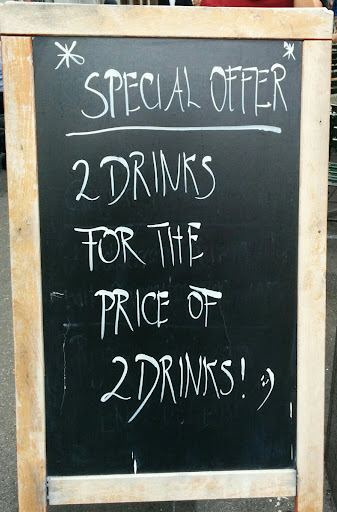 * SPECIAL OFFER *
2 DRINKS
FOR THE
PRICE OF
2 DRINKS! ;)